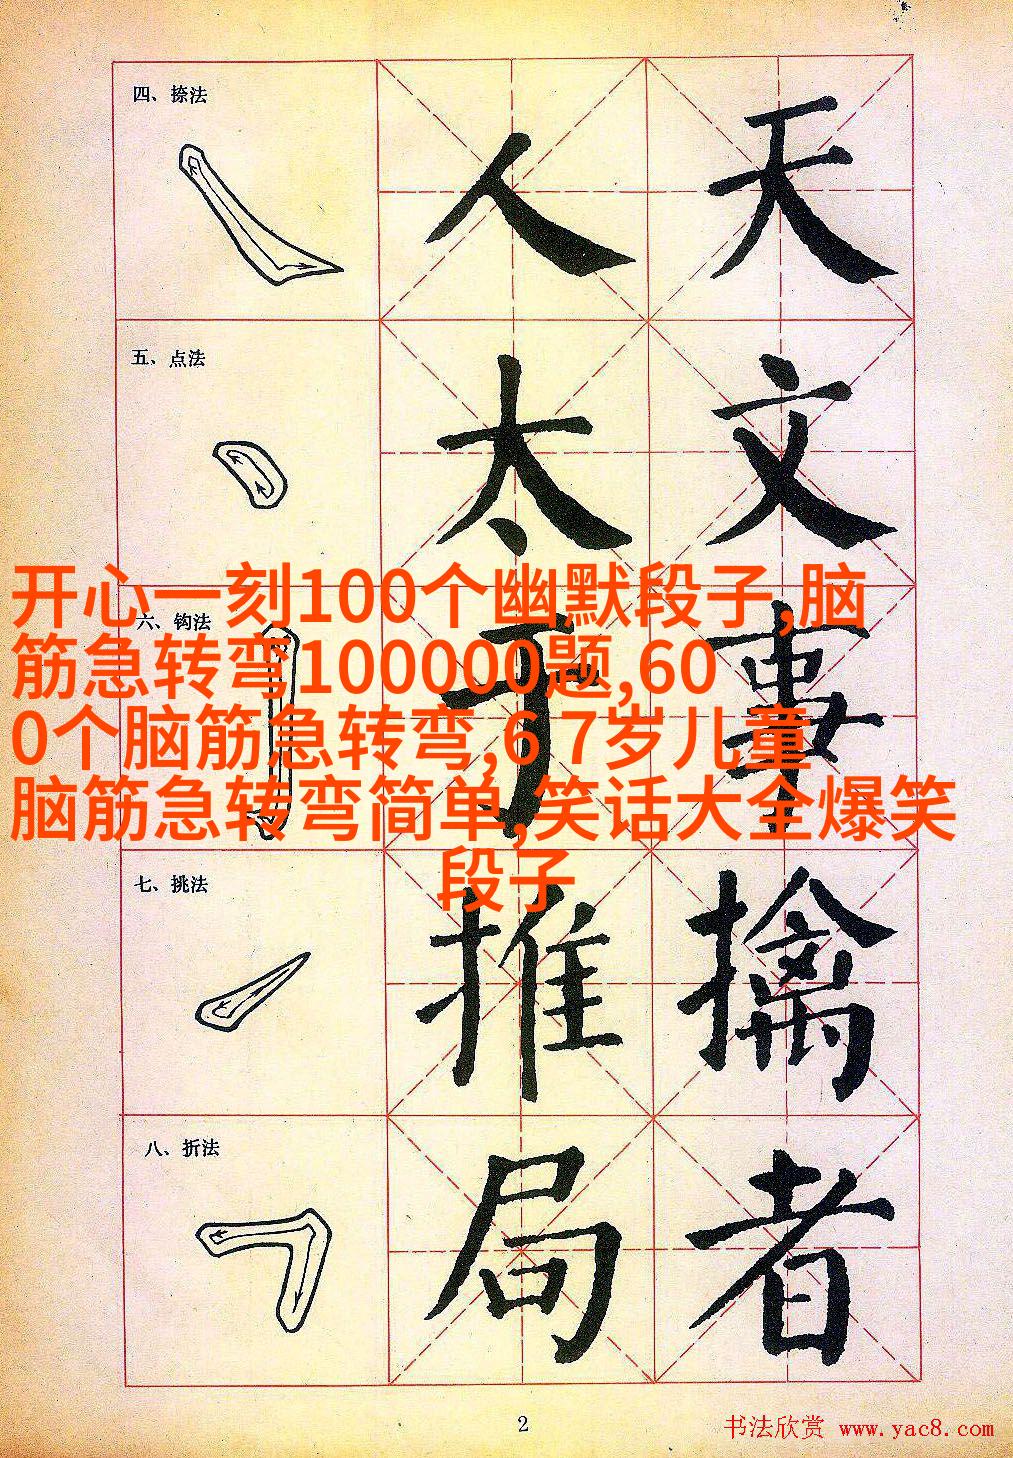 四、捺法
人 天
五、点法
太 文
开心一刻100个幽默段子,脑
六、钩法
筋急转弯100000题,60
0个脑筋急转弯,6 7岁儿童
脑筋急转弯简单,笑话大全爆笑
段子
七、挑法
推 擒
八、折法
局 者
2
书法欣赏 www.yac8.com